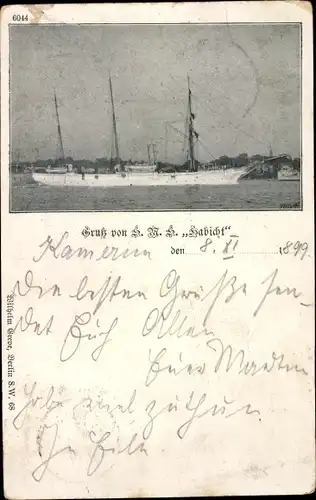 6044
Gruß von S. M. S. „Habicht“
Kamerun den 8. XI 1899
Die besten Grüße sen-
det Euch Allen
Euer Martin
habe viel zu thun.
In Eile.
Wilhelm Greve, Berlin S.W. 68